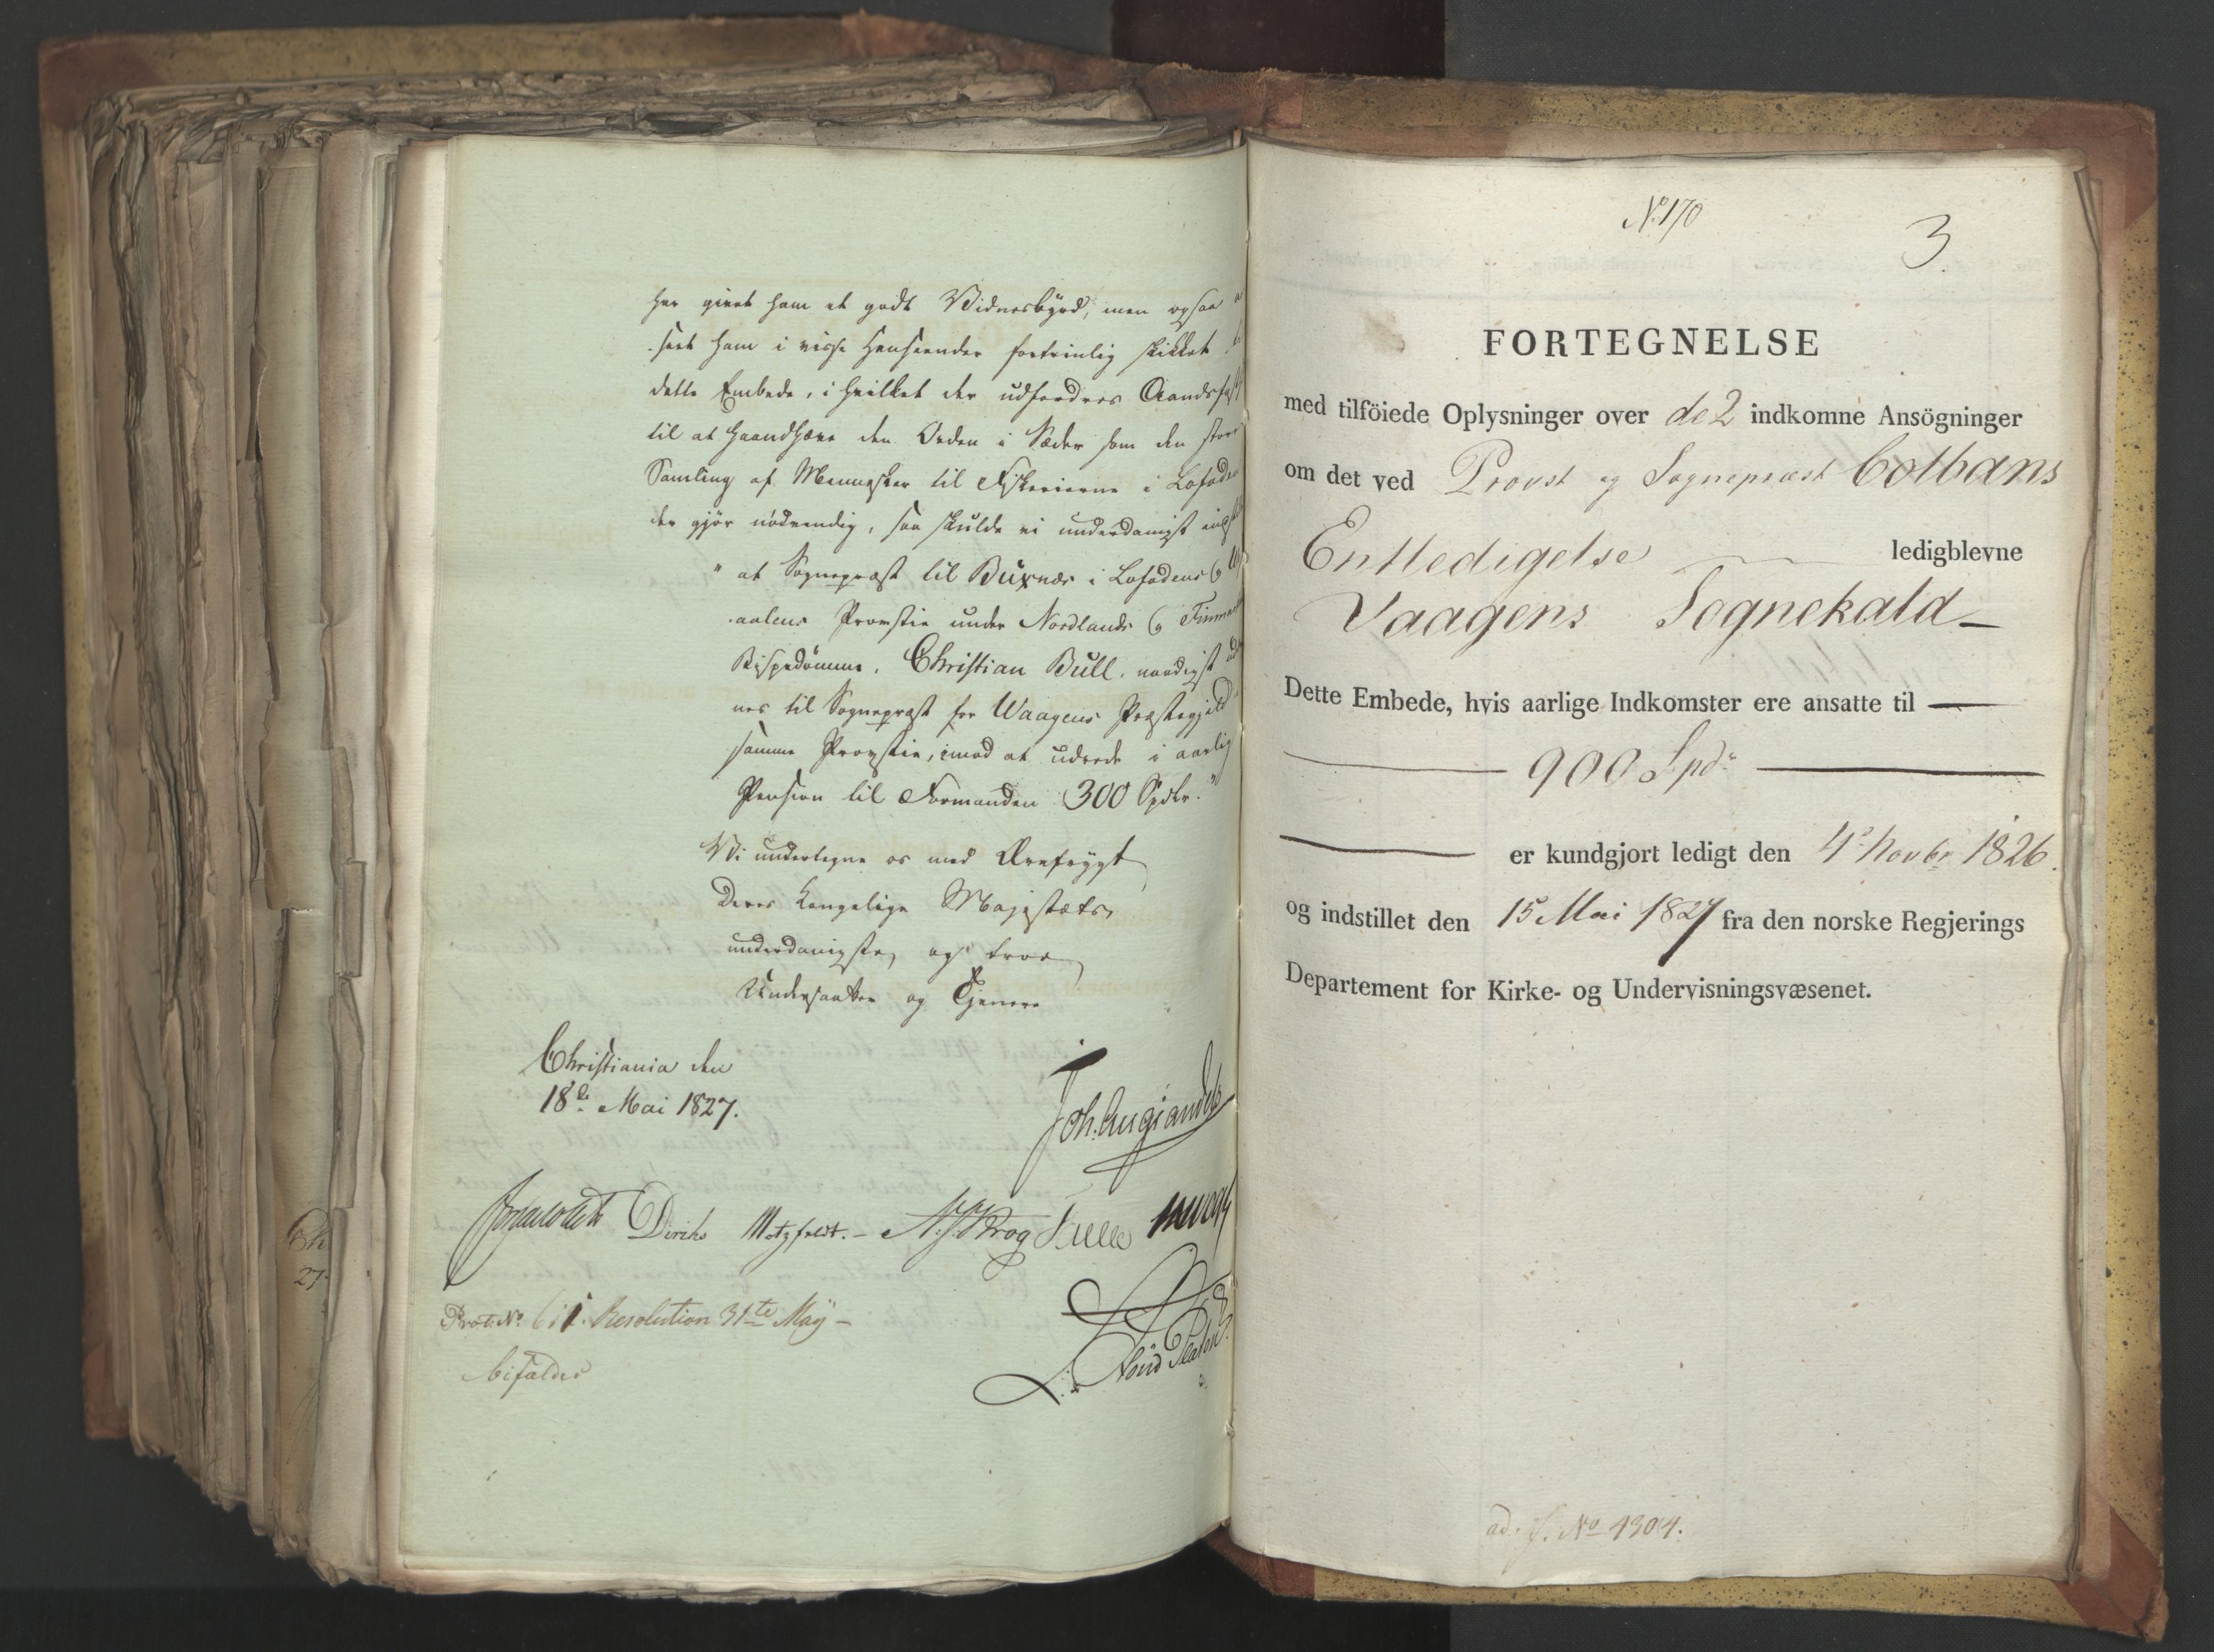 har givet ham et godt Vidnesbyrd, men ogsaa
seet ham i visse Henseender fortrinlig skikket
dette Embede, i hvilket der udfordres Aands
til at haandhæve den Orden i Sæder som den store
Samling af Mennesker til Fiskerierne i Lofoden
der gjør nødvendig, saa skulde vi underdanigst
"at Sognepræst til Buxnæs i Lofodens og
aalens Provstie under Nordlands og Finm
Bispedømme, Christian Bull, naadigst
nes til Sognepræst for Waagens Præstegjeld
samme Provstie, imod at udrede i aarlig
Pension til Formanden 300 Spdlr."
Vi undertegne os med Ærefrygt
Deres Kongelige Majestæts
underdanigste og troe
Undersaatter og Tjenere
Christiania den
18de Mai 1827.
Joh. Aug. Sandels
Diriks Motzfeldt. - N. J. Krog
Prot. No. Resolution 31te Maÿ -
bifaldes
No 170
3.
FORTEGNELSE
med tilföiede Oplysninger over de 2 indkomne Ansögninger
om det ved Provst og Sognepræst Colbans
Entledigelse ledigblevne
Vaagens Sognekald -
Dette Embede, hvis aarlige Indkomster ere ansatte til —
— 900 Spdr —
— er kundgjort ledigt den 4de Novbr 1826.
og indstillet den 15 Mai 1827 fra den norske Regjerings
Departement for Kirke- og Undervisningsvæsenet.
ad. J. No 4304.